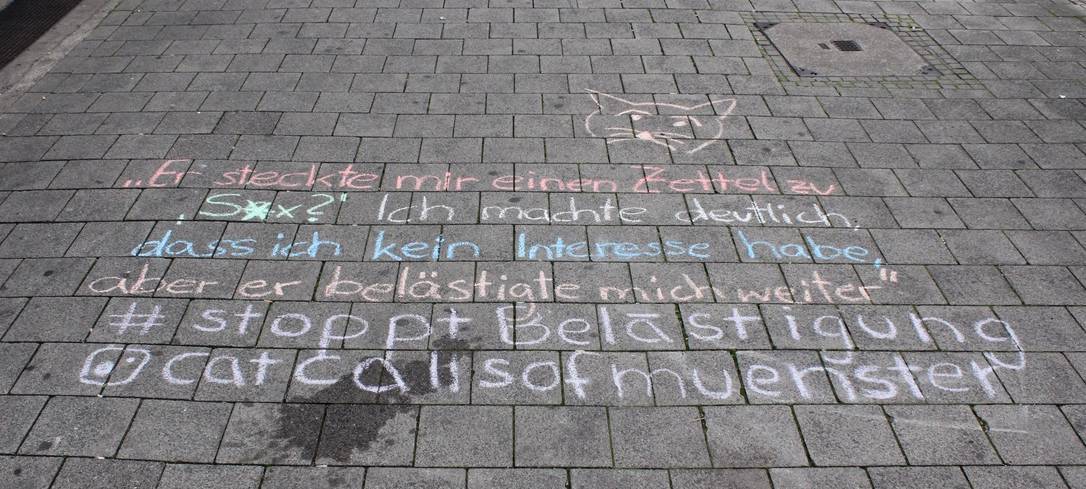 „Er steckte mir einen Zettel zu
‚S*x?' Ich machte deutlich,
dass ich kein Interesse habe,
aber er belästigte mich weiter"
#stoppt Belästigung
@catcallsofmuenster